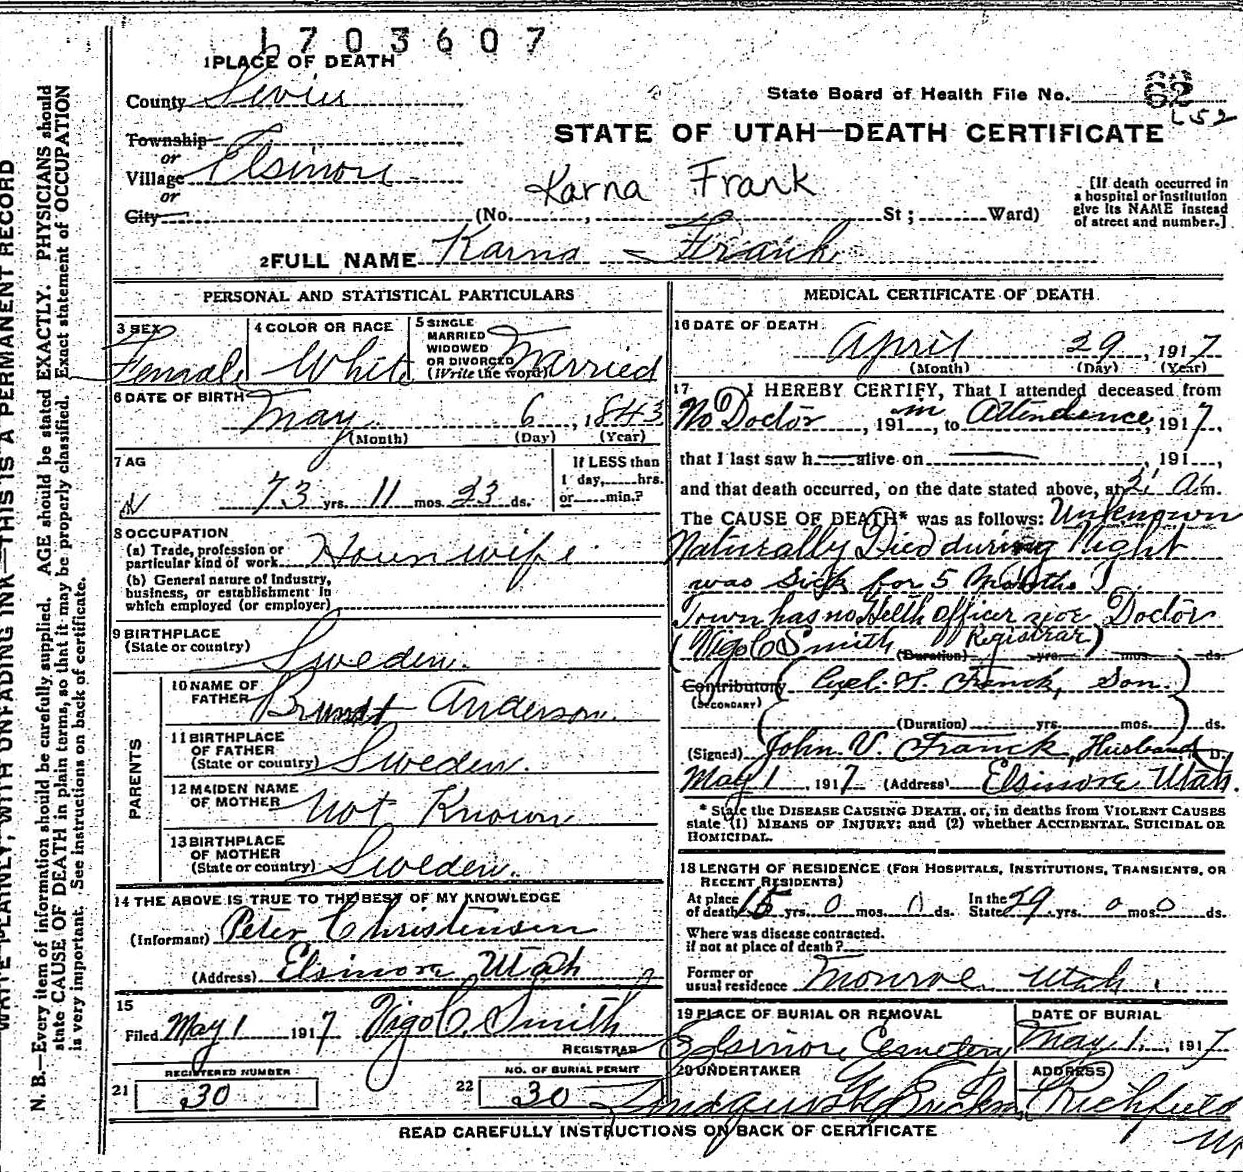 1703607
1 PLACE OF DEATH
County Sevier
State Board of Health File No. 62
652
STATE OF UTAH—DEATH CERTIFICATE
Township
or
Village Elsinore
or
City (No. , St; Ward)
Karna Frank
[If death occurred in
a hospital or institution
give its NAME instead
of street and number.]
2 FULL NAME Karna Frank
PERSONAL AND STATISTICAL PARTICULARS
3 SEX
Female
4 COLOR OR RACE
White
5 SINGLE
MARRIED
WIDOWED
OR DIVORCED
(Write the word)
Married
6 DATE OF BIRTH
May 6, 1843
(Month) (Day) (Year)
7 AG
73 yrs. 11 mos. 23 ds.
If LESS than
1 day, hrs.
or min.?
8 OCCUPATION
(a) Trade, profession or
particular kind of work
(b) General nature of Industry,
business, or establishment in
which employed (or employer)
9 BIRTHPLACE
(State or country) Sweden.
PARENTS
10 NAME OF
FATHER Anderson.
11 BIRTHPLACE
OF FATHER
(State or country) Sweden.
12 MAIDEN NAME
OF MOTHER Not Known
13 BIRTHPLACE
OF MOTHER
(State or country) Sweden.
14 THE ABOVE IS TRUE TO THE BEST OF MY KNOWLEDGE
(Informant) Peter Christensen
(Address) Elsinore Utah
15
Filed May 1 1917 Vigo C. Smith
REGISTRAR
21 REGISTERED NUMBER
30
22 NO. OF BURIAL PERMIT
30
MEDICAL CERTIFICATE OF DEATH
16 DATE OF DEATH
April 29, 1917
(Month) (Day) (Year)
17 I HEREBY CERTIFY, That I attended deceased from
No Doctor, 191 in, to Attendence, 1917,
that I last saw h alive on , 191 ,
and that death occurred, on the date stated above, at 2, a m.
The CAUSE OF DEATH* was as follows: Unknown
Naturally Died during Night
was sick for 5 Months
Town has no Helth officer nor Doctor
(Vigo C Smith Registrar)
(Duration) yrs. mos. ds.
Contributory
(SECONDARY)
(T. Franck, Son.)
(Duration) yrs. mos. ds.
(Signed) John V. Franck, Husband D.
May 1, 1917 (Address) Elsinore Utah.
* State the DISEASE CAUSING DEATH, or, in deaths from VIOLENT CAUSES
state (1) MEANS OF INJURY; and (2) whether ACCIDENTAL, SUICIDAL OR
HOMICIDAL.
18 LENGTH OF RESIDENCE (FOR HOSPITALS, INSTITUTIONS, TRANSIENTS, OR
RECENT RESIDENTS)
At place
of death 15 yrs. 0 mos. 0 ds.
In the
State 29 yrs. 0 mos. 0 ds.
Where was disease contracted.
if not at place of death?
Former or
usual residence Monroe Utah.
19 PLACE OF BURIAL OR REMOVAL
Elsinore Cemetery
DATE OF BURIAL
May 1, 1917
20 UNDERTAKER
ADDRESS
Richfield
READ CAREFULLY INSTRUCTIONS ON BACK OF CERTIFICATE
WRITE PLAINLY, WITH UNFADING INK—THIS IS A PERMANENT RECORD
N. B.—Every item of information should be carefully supplied. AGE should be stated EXACTLY. PHYSICIANS should
state CAUSE OF DEATH in plain terms, so that it may be properly classified. Exact statement of OCCUPATION
is very important. See instructions on back of certificate.